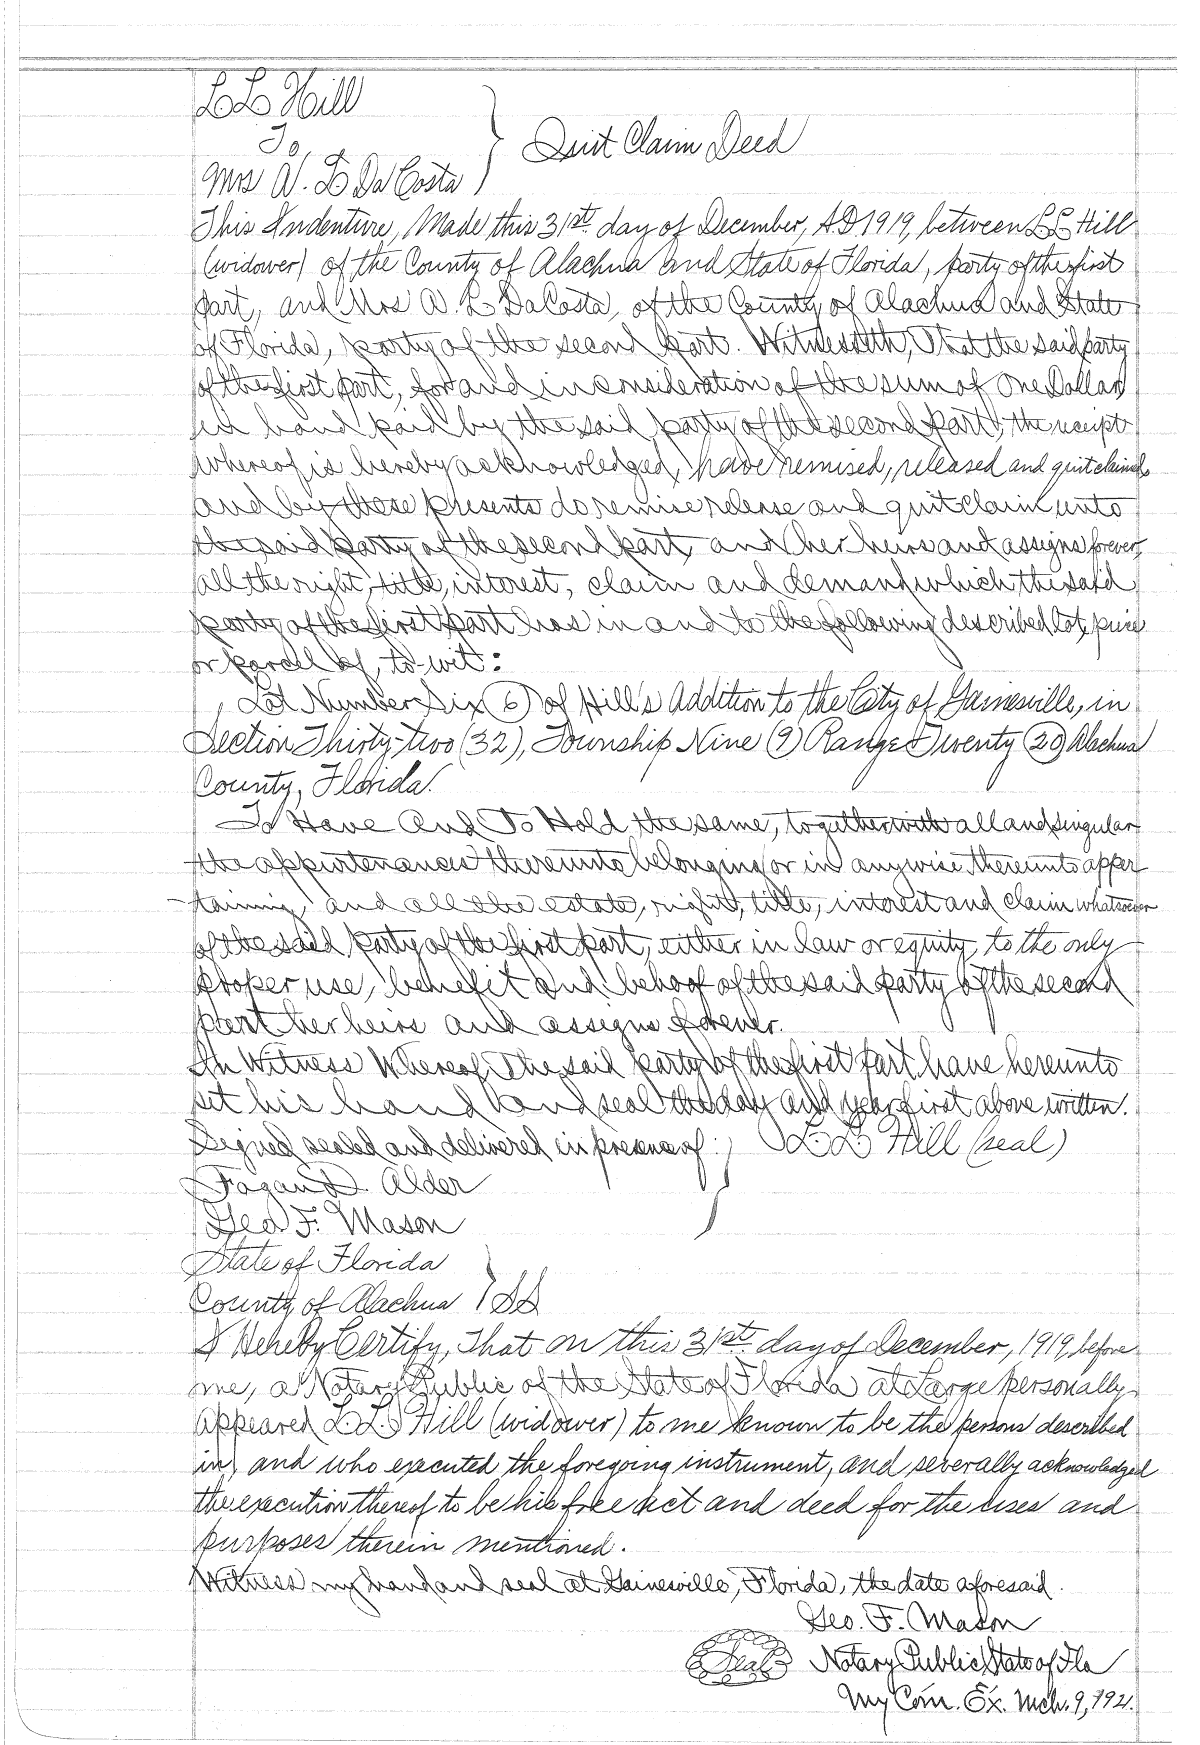 L L Hill
To
Mrs A. L DaCosta
Quit Claim Deed
This Indenture, Made this 31st. day of December, A.D. 1919, between L L Hill
(widower) of the County of Alachua and State of Florida, party of the first
part, and Mrs A. L DaCosta, of the County of Alachua and State
of Florida, party of the second part. Witnesseth, That the said party
of the first part, for and in consideration of the sum of One Dollar,
in hand paid by the said party of the second part, the receipt
whereof is hereby acknowledged, have remised, released and quitclaimed
and by these presents do remise release and quitclaim unto
the said party of the second part, and her heirs and assigns forever,
all the right, title, interest, claim and demand which the said
party of the first part has in and to the following described lot, piece
or parcel of, to-wit:
Lot Number Six (6) of Hill's Addition to the City of Gainesville, in
Section Thirty-two (32), Township Nine (9) Range Twenty (20) Alachua
County, Florida.
To Have And To Hold the same, together with all and singular
the appurtenances thereunto belonging or in anywise thereunto apper
-taining, and all the estate, right, title, interest and claim whatsoever
of the said party of the first part, either in law or equity, to the only
proper use, benefit and behoof of the said party of the second
part her heirs and assigns forever.
In Witness Whereof, The said party of the first part have hereunto
set his hand and seal the day and year first above written.
Signed sealed and delivered in presence of: L L Hill (seal)
Fagan D. Alder
Geo F. Mason
State of Florida
County of Alachua } SS
I Hereby Certify, That on this 31st. day of December, 1919, before
me, a Notary Public of the State of Florida at Large personally
appeared L L Hill (widower) to me known to be the persons described
in, and who executed the foregoing instrument, and severally acknowledged
the execution thereof to be his free act and deed for the uses and
purposes therein mentioned.
Witness my hand and seal at Gainesville, Florida, the date aforesaid.
Geo. F. Mason
Seal Notary Public State of Fla
My Com. Ex. Mch. 9, 1921.